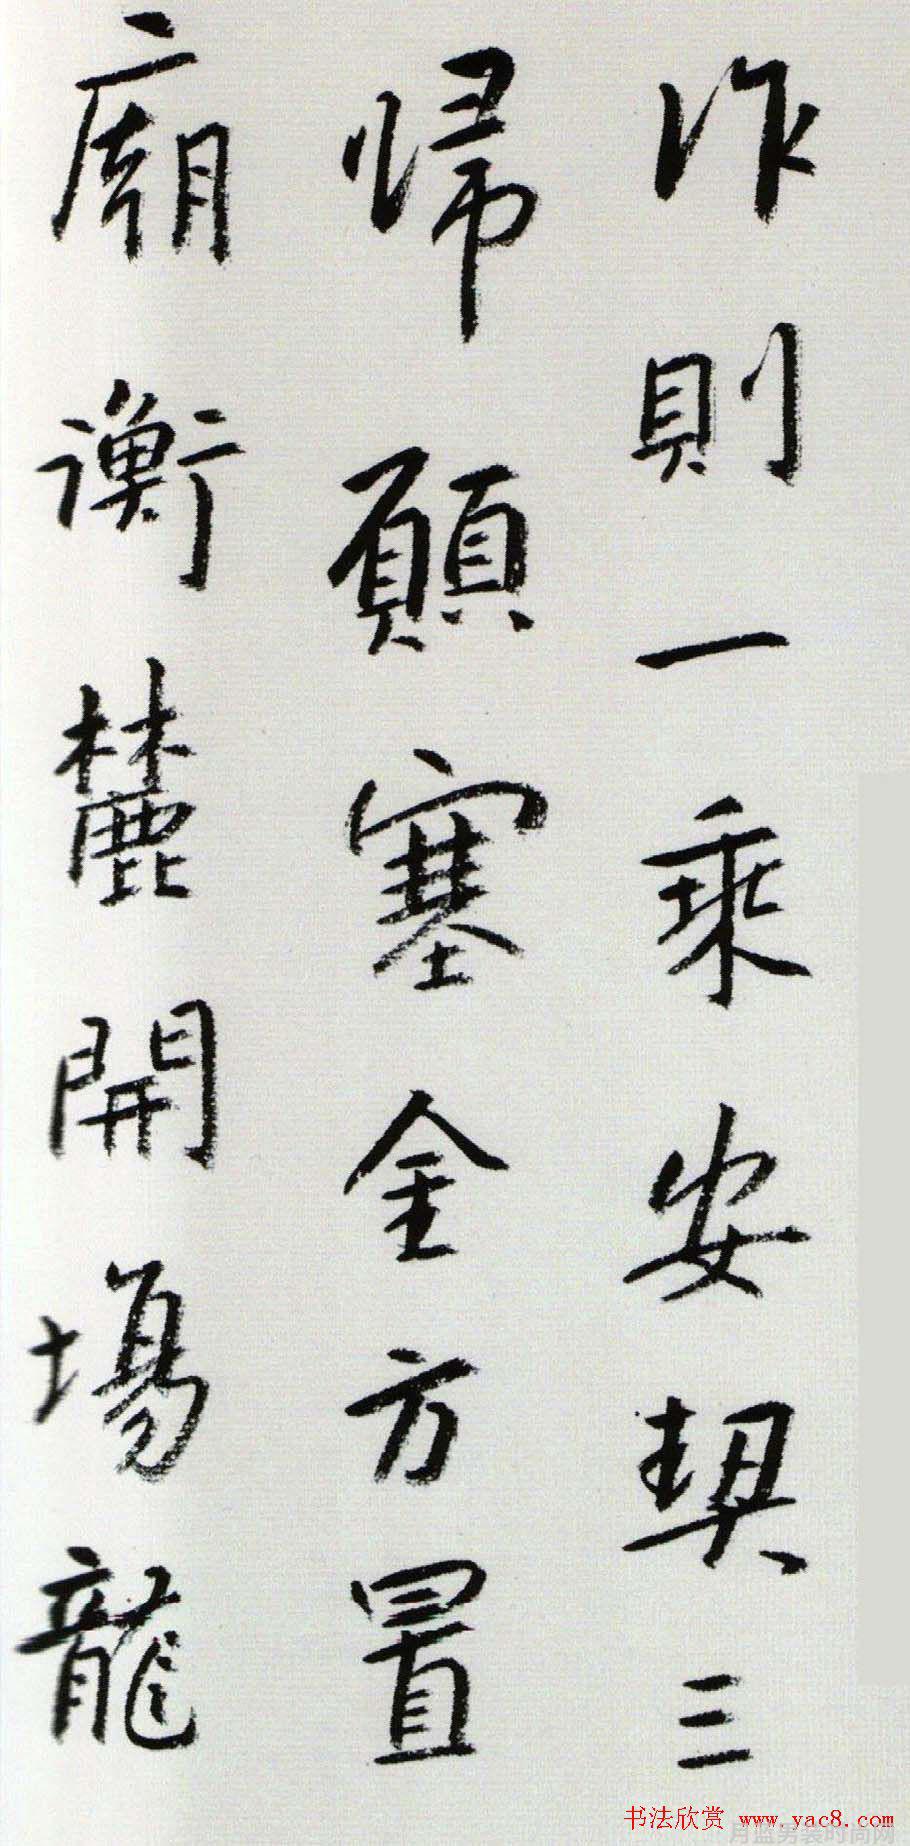 作則一乘安契三
歸願塞金方置
廟衡麓開場龍
书法欣赏 www.yac8.com